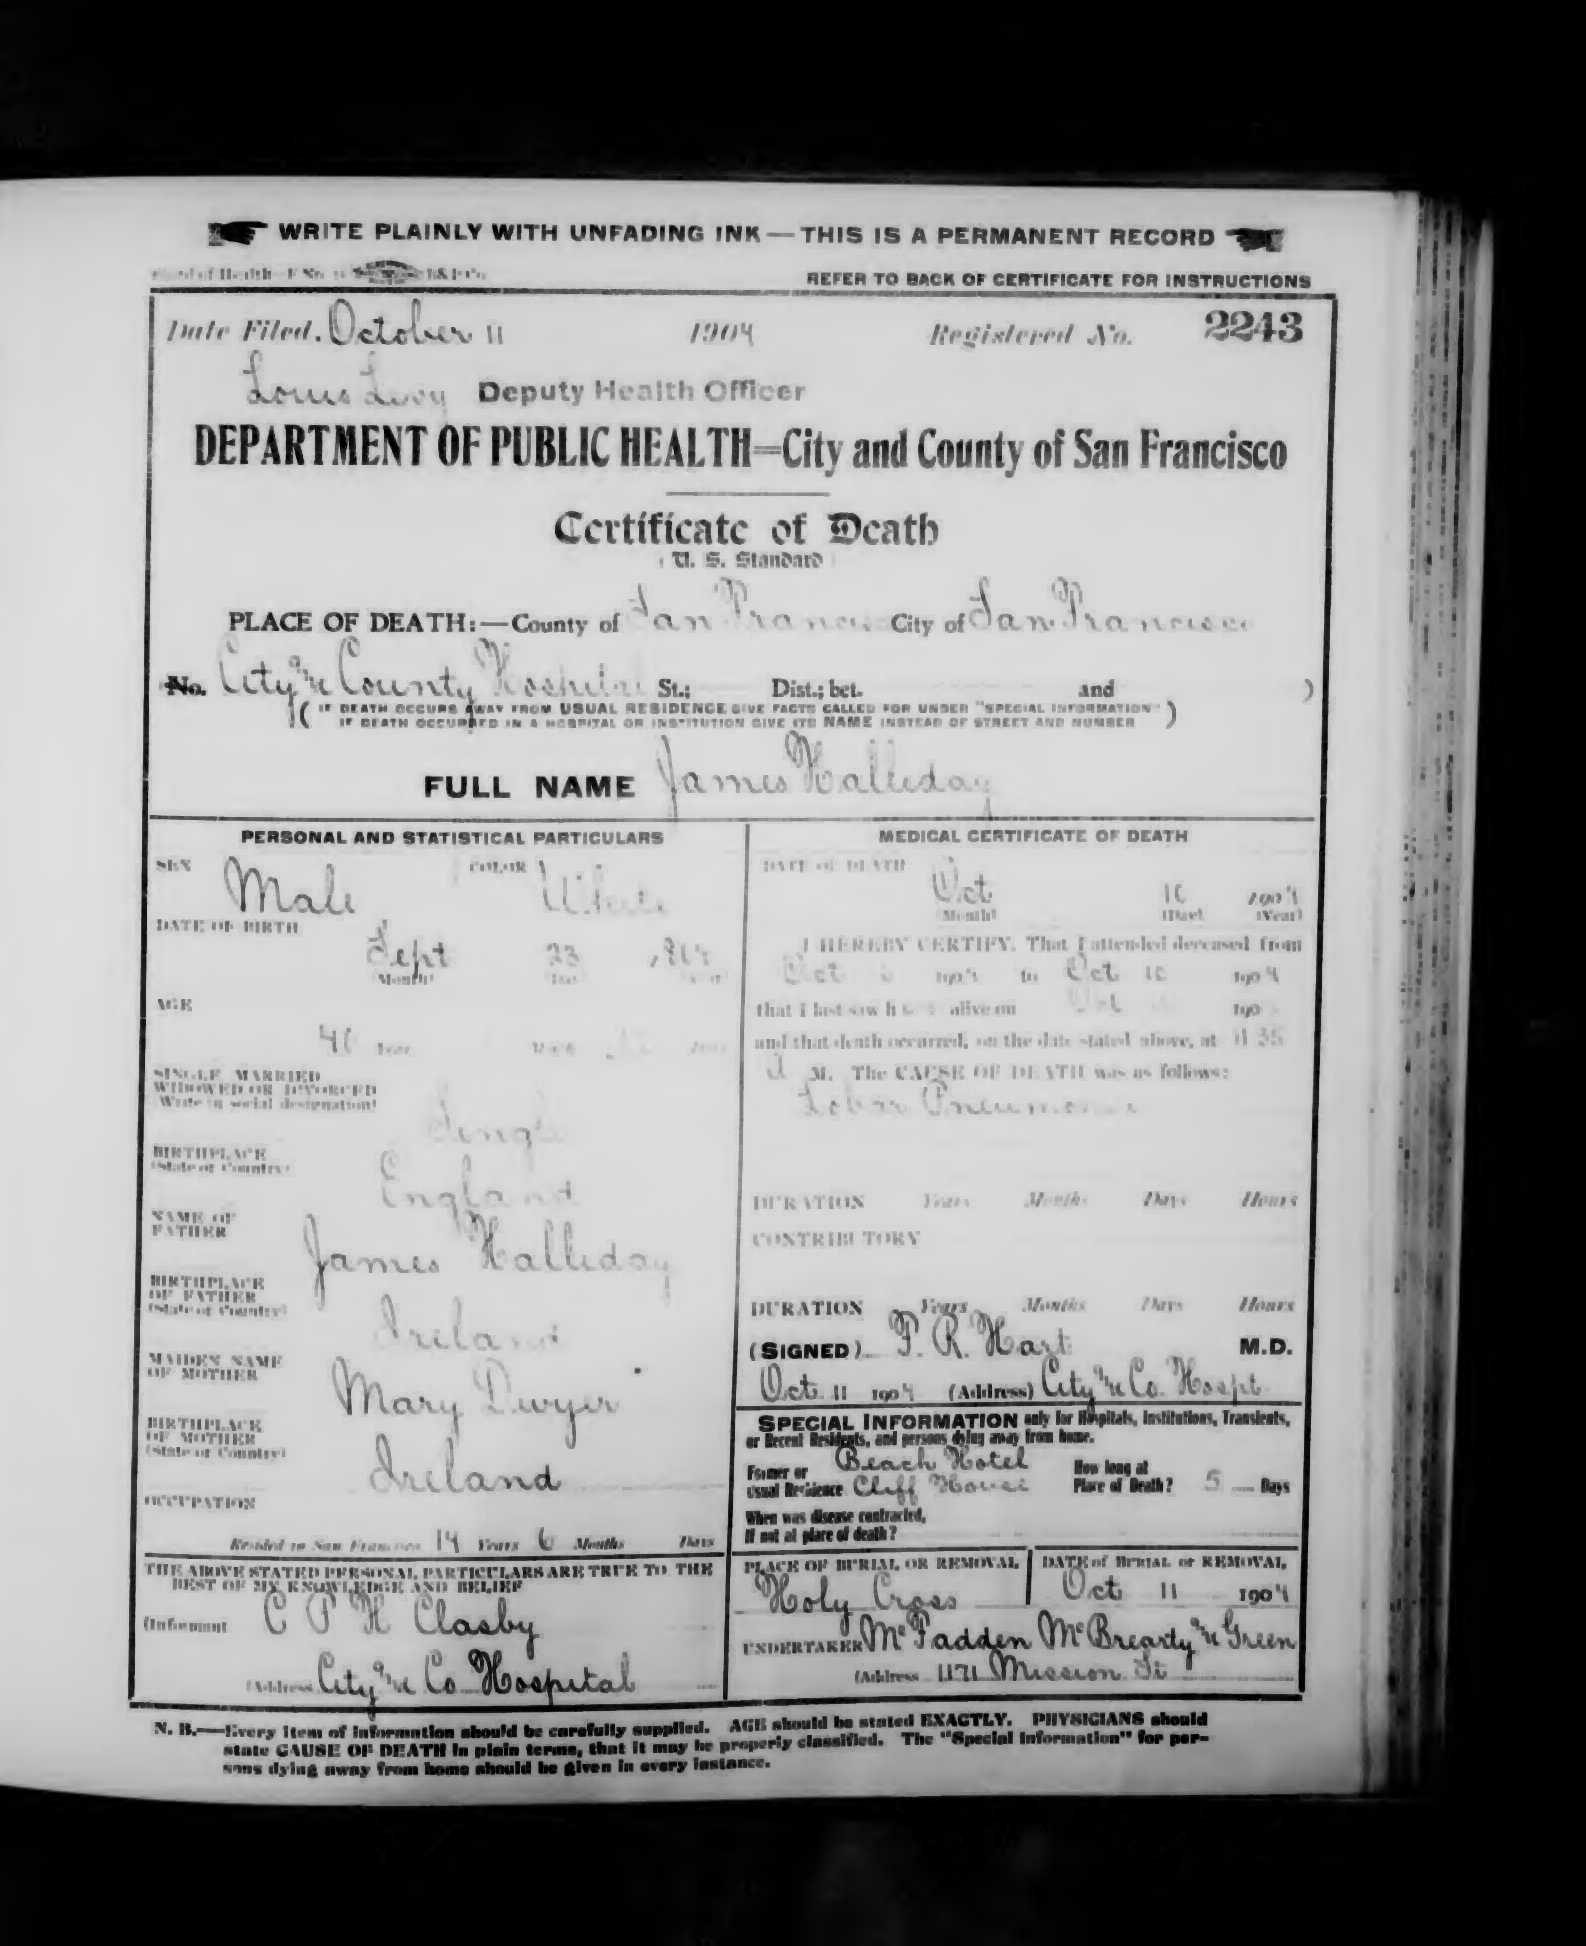 WRITE PLAINLY WITH UNFADING INK—THIS IS A PERMANENT RECORD
REFER TO BACK OF CERTIFICATE FOR INSTRUCTIONS
Date Filed, October 11 1904 Registered No. 2243
Louis Levy Deputy Health Officer
DEPARTMENT OF PUBLIC HEALTH=City and County of San Francisco
Certificate of Death
( U. S. Standard )
PLACE OF DEATH:—County of San Francisco City of San Francisco
No. City & County Hospital St.; Dist.; bet. and )
( IF DEATH OCCURS AWAY FROM USUAL RESIDENCE GIVE FACTS CALLED FOR UNDER "SPECIAL INFORMATION"
IF DEATH OCCURRED IN A HOSPITAL OR INSTITUTION GIVE ITS NAME INSTEAD OF STREET AND NUMBER )
FULL NAME James Halliday
PERSONAL AND STATISTICAL PARTICULARS
SEX Male COLOR White
DATE OF BIRTH
Sept 23
(Month)
AGE
40
SINGLE MARRIED
WIDOWED OR DIVORCED
(Write in social designation)
Single
BIRTHPLACE
(State or Country)
England
NAME OF
FATHER
James Halliday
BIRTHPLACE
OF FATHER
(State or Country)
Ireland
MAIDEN NAME
OF MOTHER
Mary Dwyer
BIRTHPLACE
OF MOTHER
(State or Country)
Ireland
OCCUPATION
Resided in San Francisco 14 Years 6 Months Days
THE ABOVE STATED PERSONAL PARTICULARS ARE TRUE TO THE
BEST OF MY KNOWLEDGE AND BELIEF
(Informant C P H Clasby
(Address City & Co Hospital
MEDICAL CERTIFICATE OF DEATH
DATE OF DEATH
Oct 10 1904
(Month) (Day) (Year)
I HEREBY CERTIFY, That I attended deceased from
Oct 1904 to Oct 10 1904
that I last saw h alive on Oct 190
and that death occurred, on the date stated above, at 11 35
A M. The CAUSE OF DEATH was as follows:
Lobar Pneumonia
DURATION Years Months Days Hours
CONTRIBUTORY
DURATION Years Months Days Hours
(SIGNED) T. R. Hart M.D.
Oct 11 1904 (Address) City & Co. Hospt
SPECIAL INFORMATION only for Hospitals, Institutions, Transients,
or Recent Residents, and persons dying away from home.
Former or Usual Residence Beach Hotel Cliff House
How long at Place of Death? 5 Days
When was disease contracted,
If not at place of death?
PLACE OF BURIAL OR REMOVAL
Holy Cross
DATE of BURIAL or REMOVAL
Oct 11 1904
UNDERTAKER McFadden McBrearty & Green
(Address 1171 Mission St
N. B.—Every item of information should be carefully supplied. AGE should be stated EXACTLY. PHYSICIANS should
state CAUSE OF DEATH in plain terms, that it may be properly classified. The "Special Information" for per-
sons dying away from home should be given in every instance.